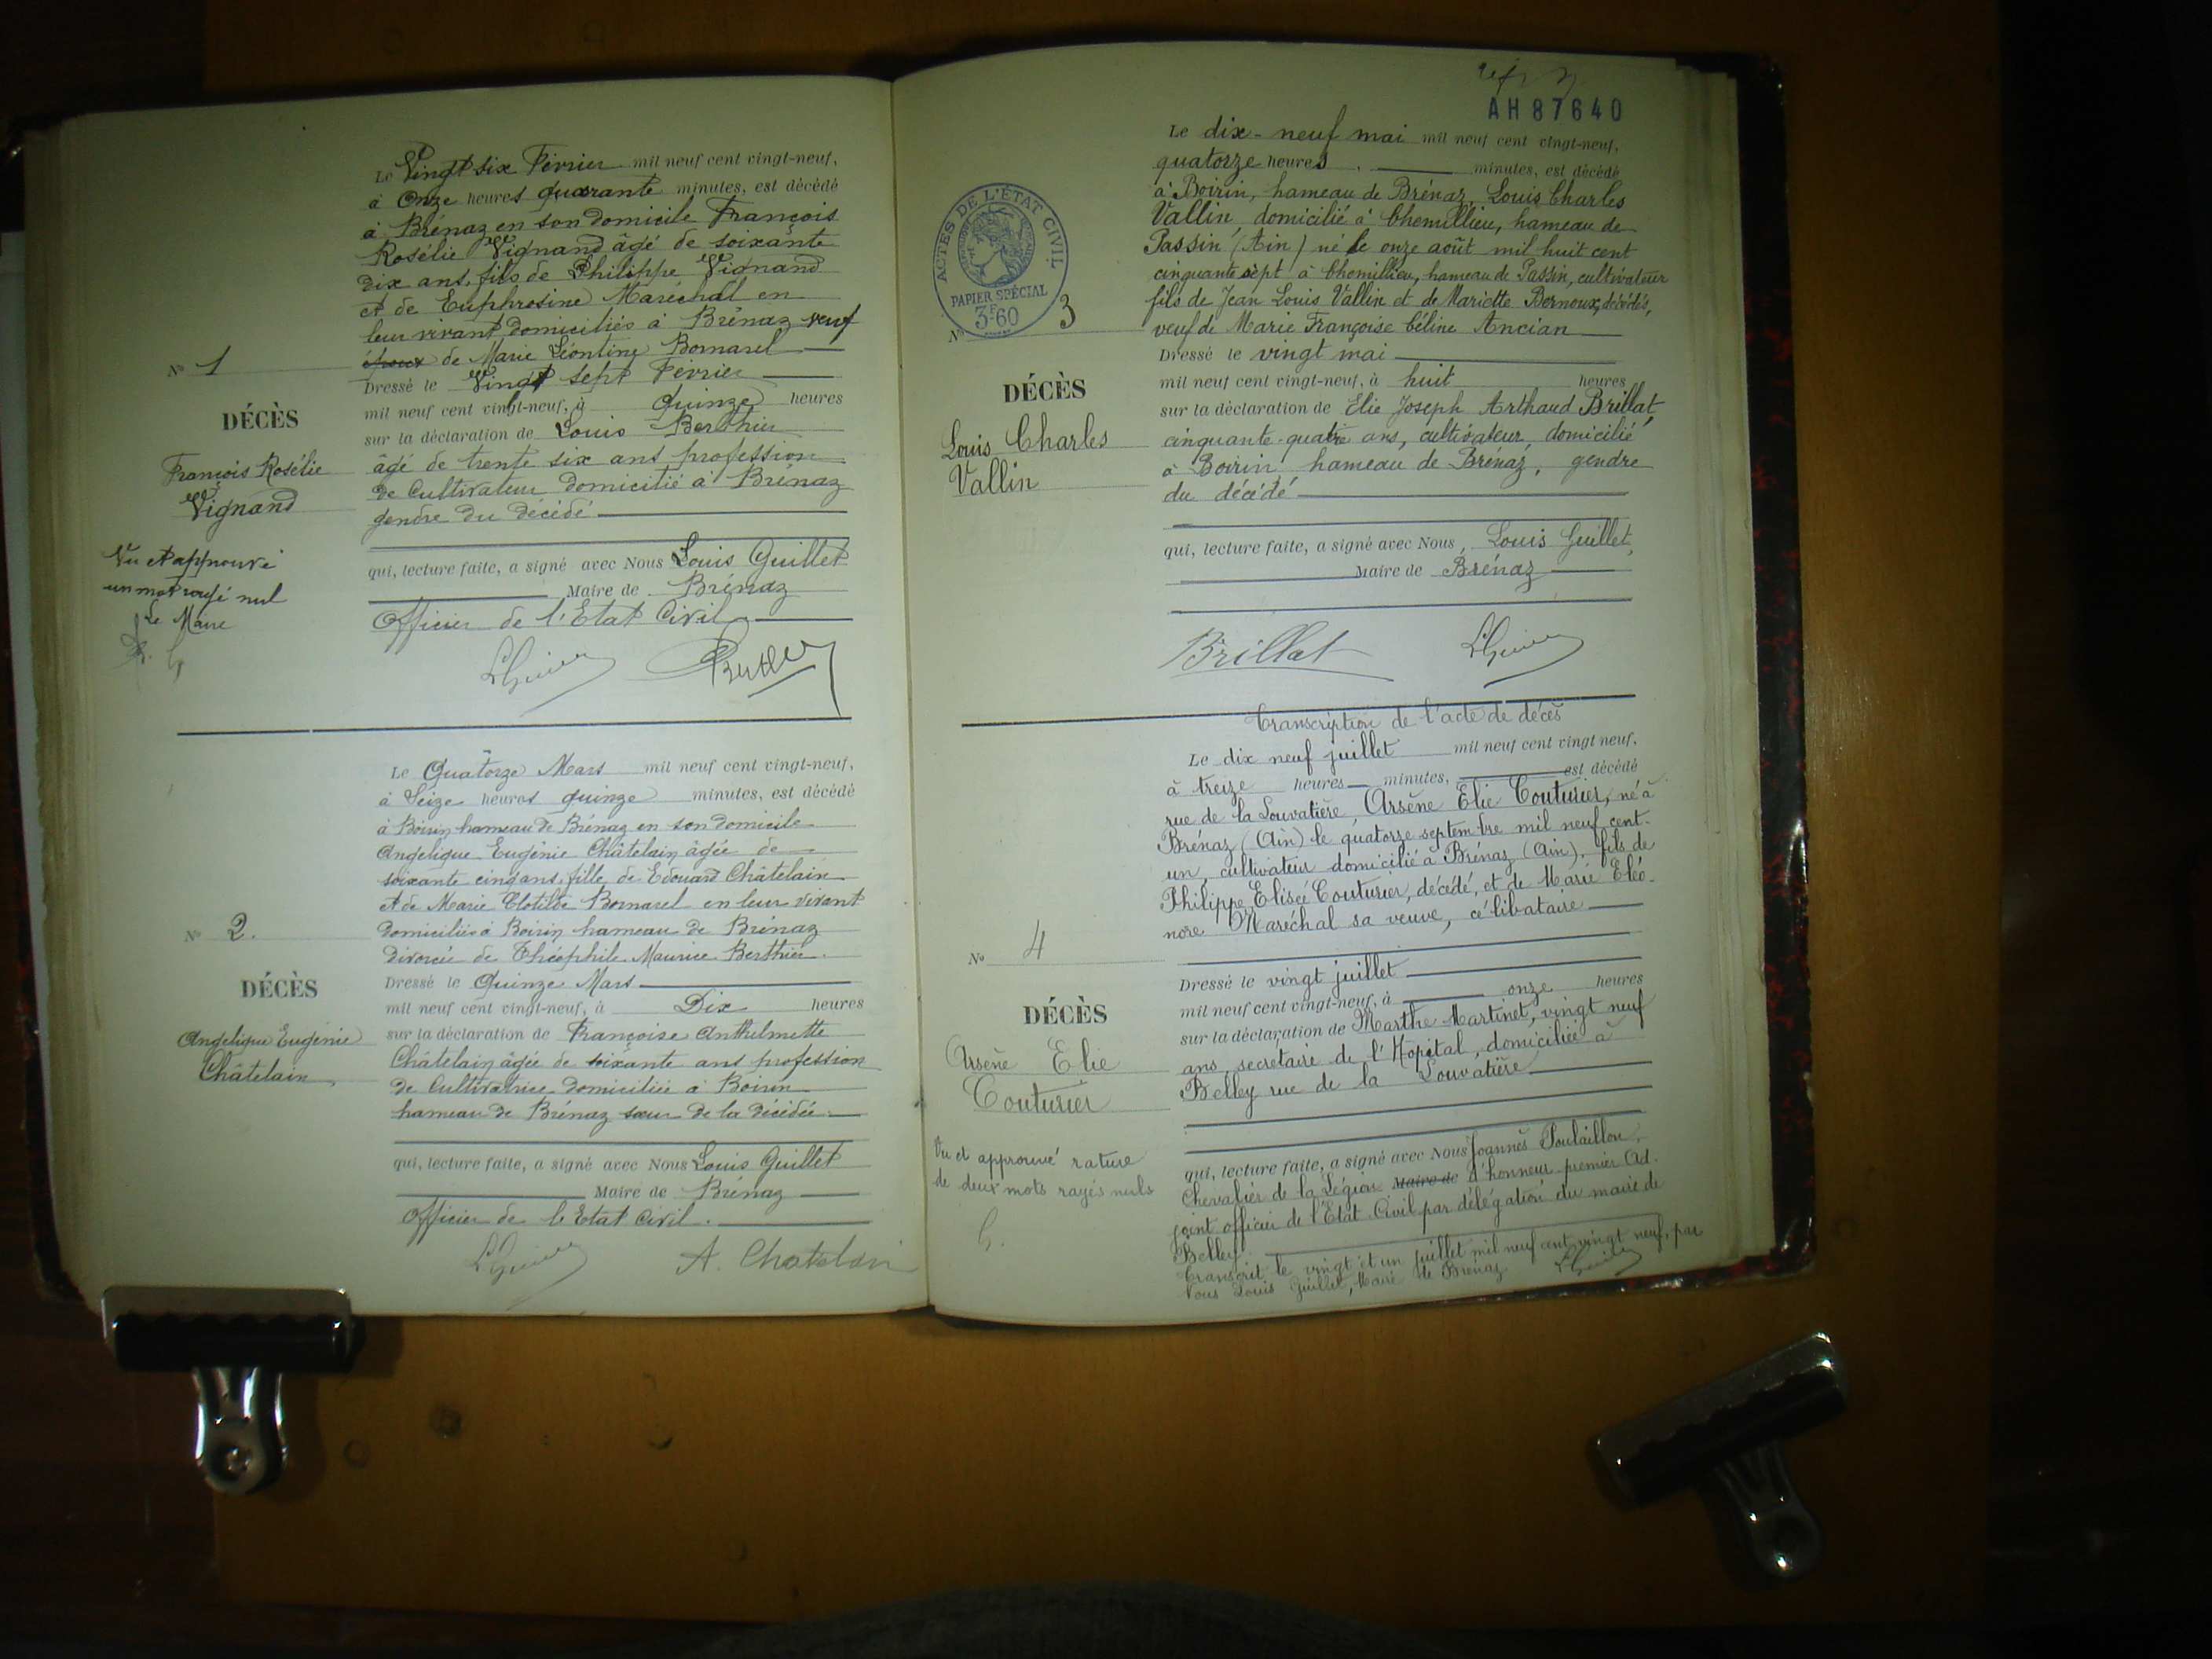 Le Vingt six Février mil neuf cent vingt-neuf,
à Onze heures quarante minutes, est décédé
à Brénaz en son domicile François
Rosélie Vignand âgé de soixante
dix ans, fils de Philippe Vignand
et de Euphrosine Maréchal en
leur vivant domiciliés à Brénaz veuf
époux de Marie Léontine Bornarel
Dressé le Vingt sept Février
mil neuf cent vingt-neuf, à Quinze heures
sur la déclaration de Louis Berthier
âgé de trente six ans profession
de Cultivateur domicilié à Brénaz
gendre du décédé
qui, lecture faite, a signé avec Nous Louis Guillet
Maire de Brénaz
Officier de l'Etat Civil
LGuillet Berthier
N° 1
DÉCÈS
François Rosélie
Vignand
Vu et approuvé
un mot rayé nul
Le Maire
L. G
Le Quatorze Mars mil neuf cent vingt-neuf,
à Seize heures quinze minutes, est décédé
à Boirin hameau de Brénaz en son domicile
Angelique Eugénie Châtelain âgée de
soixante cinq ans, fille de Edouard Châtelain
et de Marie Clotilde Bornarel en leur vivant
domiciliés à Boirin hameau de Brénaz
divorcée de Théophile Maurice Berthier.
Dressé le Quinze Mars
mil neuf cent vingt-neuf, à Dix heures
sur la déclaration de Françoise Anthelmette
Châtelain âgée de soixante ans profession
de Cultivatrice domiciliée à Boirin
hameau de Brénaz sœur de la décédée
qui, lecture faite, a signé avec Nous Louis Guillet
Maire de Brénaz
Officier de l'Etat Civil.
LGuillet A. Chatelain
N° 2.
DÉCÈS
Angelique Eugénie
Châtelain
AH87640
ACTES DE L'ÉTAT CIVIL
PAPIER SPÉCIAL
3F60
Le dix-neuf mai mil neuf cent vingt-neuf,
quatorze heures minutes, est décédé
à Boirin, hameau de Brénaz, Louis Charles
Vallin, domicilié à Chemillieu, hameau de
Passin (Ain) né le onze août mil huit cent
cinquante sept à Chemillieu, hameau de Passin, cultivateur
fils de Jean Louis Vallin et de Mariette Bernoux, décédés,
veuf de Marie Françoise Céline Ancian
Dressé le vingt mai
mil neuf cent vingt-neuf, à huit heures
sur la déclaration de Elie Joseph Arthaud Brillat,
cinquante-quatre ans, cultivateur, domicilié
à Boirin hameau de Brénaz, gendre
du décédé
qui, lecture faite, a signé avec Nous, Louis Guillet,
Maire de Brénaz
Brillat LGuillet
N° 3
DÉCÈS
Louis Charles
Vallin
Transcription de l'acte de décès
Le dix neuf juillet mil neuf cent vingt neuf,
à treize heures minutes, est décédé
rue de la Louvatière Arsène Elie Couturier, né à
Brénaz (Ain) le quatorze septembre mil neuf cent-
un, cultivateur domicilié à Brénaz (Ain), fils de
Philippe Elisée Couturier, décédé, et de Marie Eléo-
nore Maréchal sa veuve, célibataire
Dressé le vingt juillet
mil neuf cent vingt-neuf, à onze heures
sur la déclaration de Marthe Martinet, vingt neuf
ans, secrétaire de l'Hopital, domiciliée à
Belley rue de la Louvatière
qui, lecture faite, a signé avec Nous Joannès Poulaillon,
Chevalier de la Légion Maire de d'honneur premier Ad-
joint officier de l'Etat Civil par délégation du maire de
Belley.
Transcrit le vingt et un juillet mil neuf cent vingt neuf, par
Nous Louis Guillet, Maire de Brénaz LGuillet
N° 4
DÉCÈS
Arsène Elie
Couturier
Vu et approuvé rature
de deux mots rayés nuls
G.